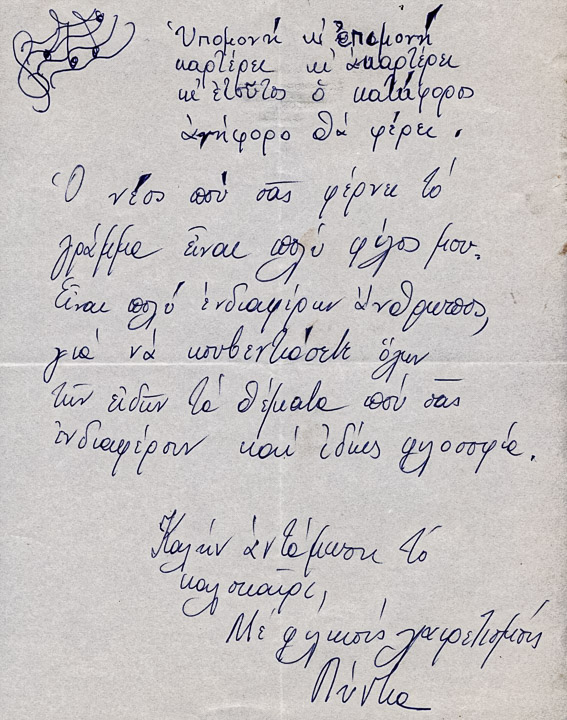 Ὑπομονή κι' ἐπιμονή
καρτέρει κι' ἀκαρτέρει
κι' ἐτοῦτος ὁ κατήφορος
ἀνήφορο θά φέρει.
Ὁ νέος πού σᾶς φέρνει τό
γράμμα εἶναι πολύ φίλος μου.
Εἶναι πολύ ἐνδιαφέρων ἄνθρωπος,
γιά νά κουβεντιάσετε ὅλων
τῶν εἰδῶν τά θέματα πού σᾶς
ἐνδιαφέρουν καί ἰδίως φιλοσοφία.
Καλήν ἀντάμωση τό
καλοκαίρι,
Μέ φιλικούς χαιρετισμούς